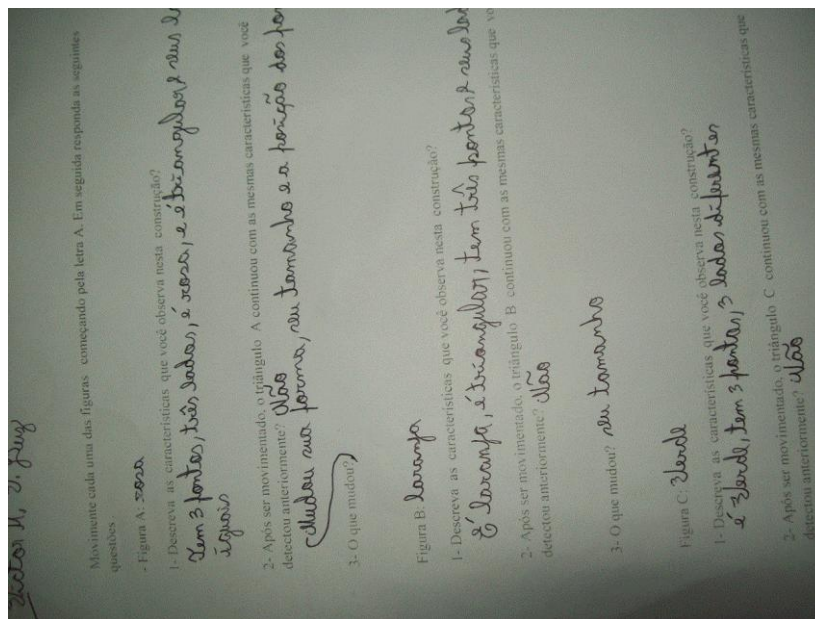 Victor H. D. Luz
Movimente cada uma das figuras começando pela letra A. Em seguida responda as seguintes
questões.
- Figura A: rosa
1- Descreva as características que você observa nesta construção?
Tem 3 pontos, três lados, é rosa, e é triangular e seus
iguais
2- Após ser movimentado, o triângulo A continuou com as mesmas características que você
detectou anteriormente? Não
Mudou sua forma, seu tamanho e a posição dos
3- O que mudou?
Figura B: laranja
1- Descreva as características que você observa nesta construção?
É laranja, é triangular, tem três pontas e seus
2- Após ser movimentado, o triângulo B continuou com as mesmas características que
detectou anteriormente? Não
3- O que mudou? seu tamanho
Figura C: Verde
1- Descreva as características que você observa nesta construção?
é Verde, tem 3 pontas, 3 lados diferentes
2- Após ser movimentado, o triângulo C continuou com as mesmas características que
detectou anteriormente? Não